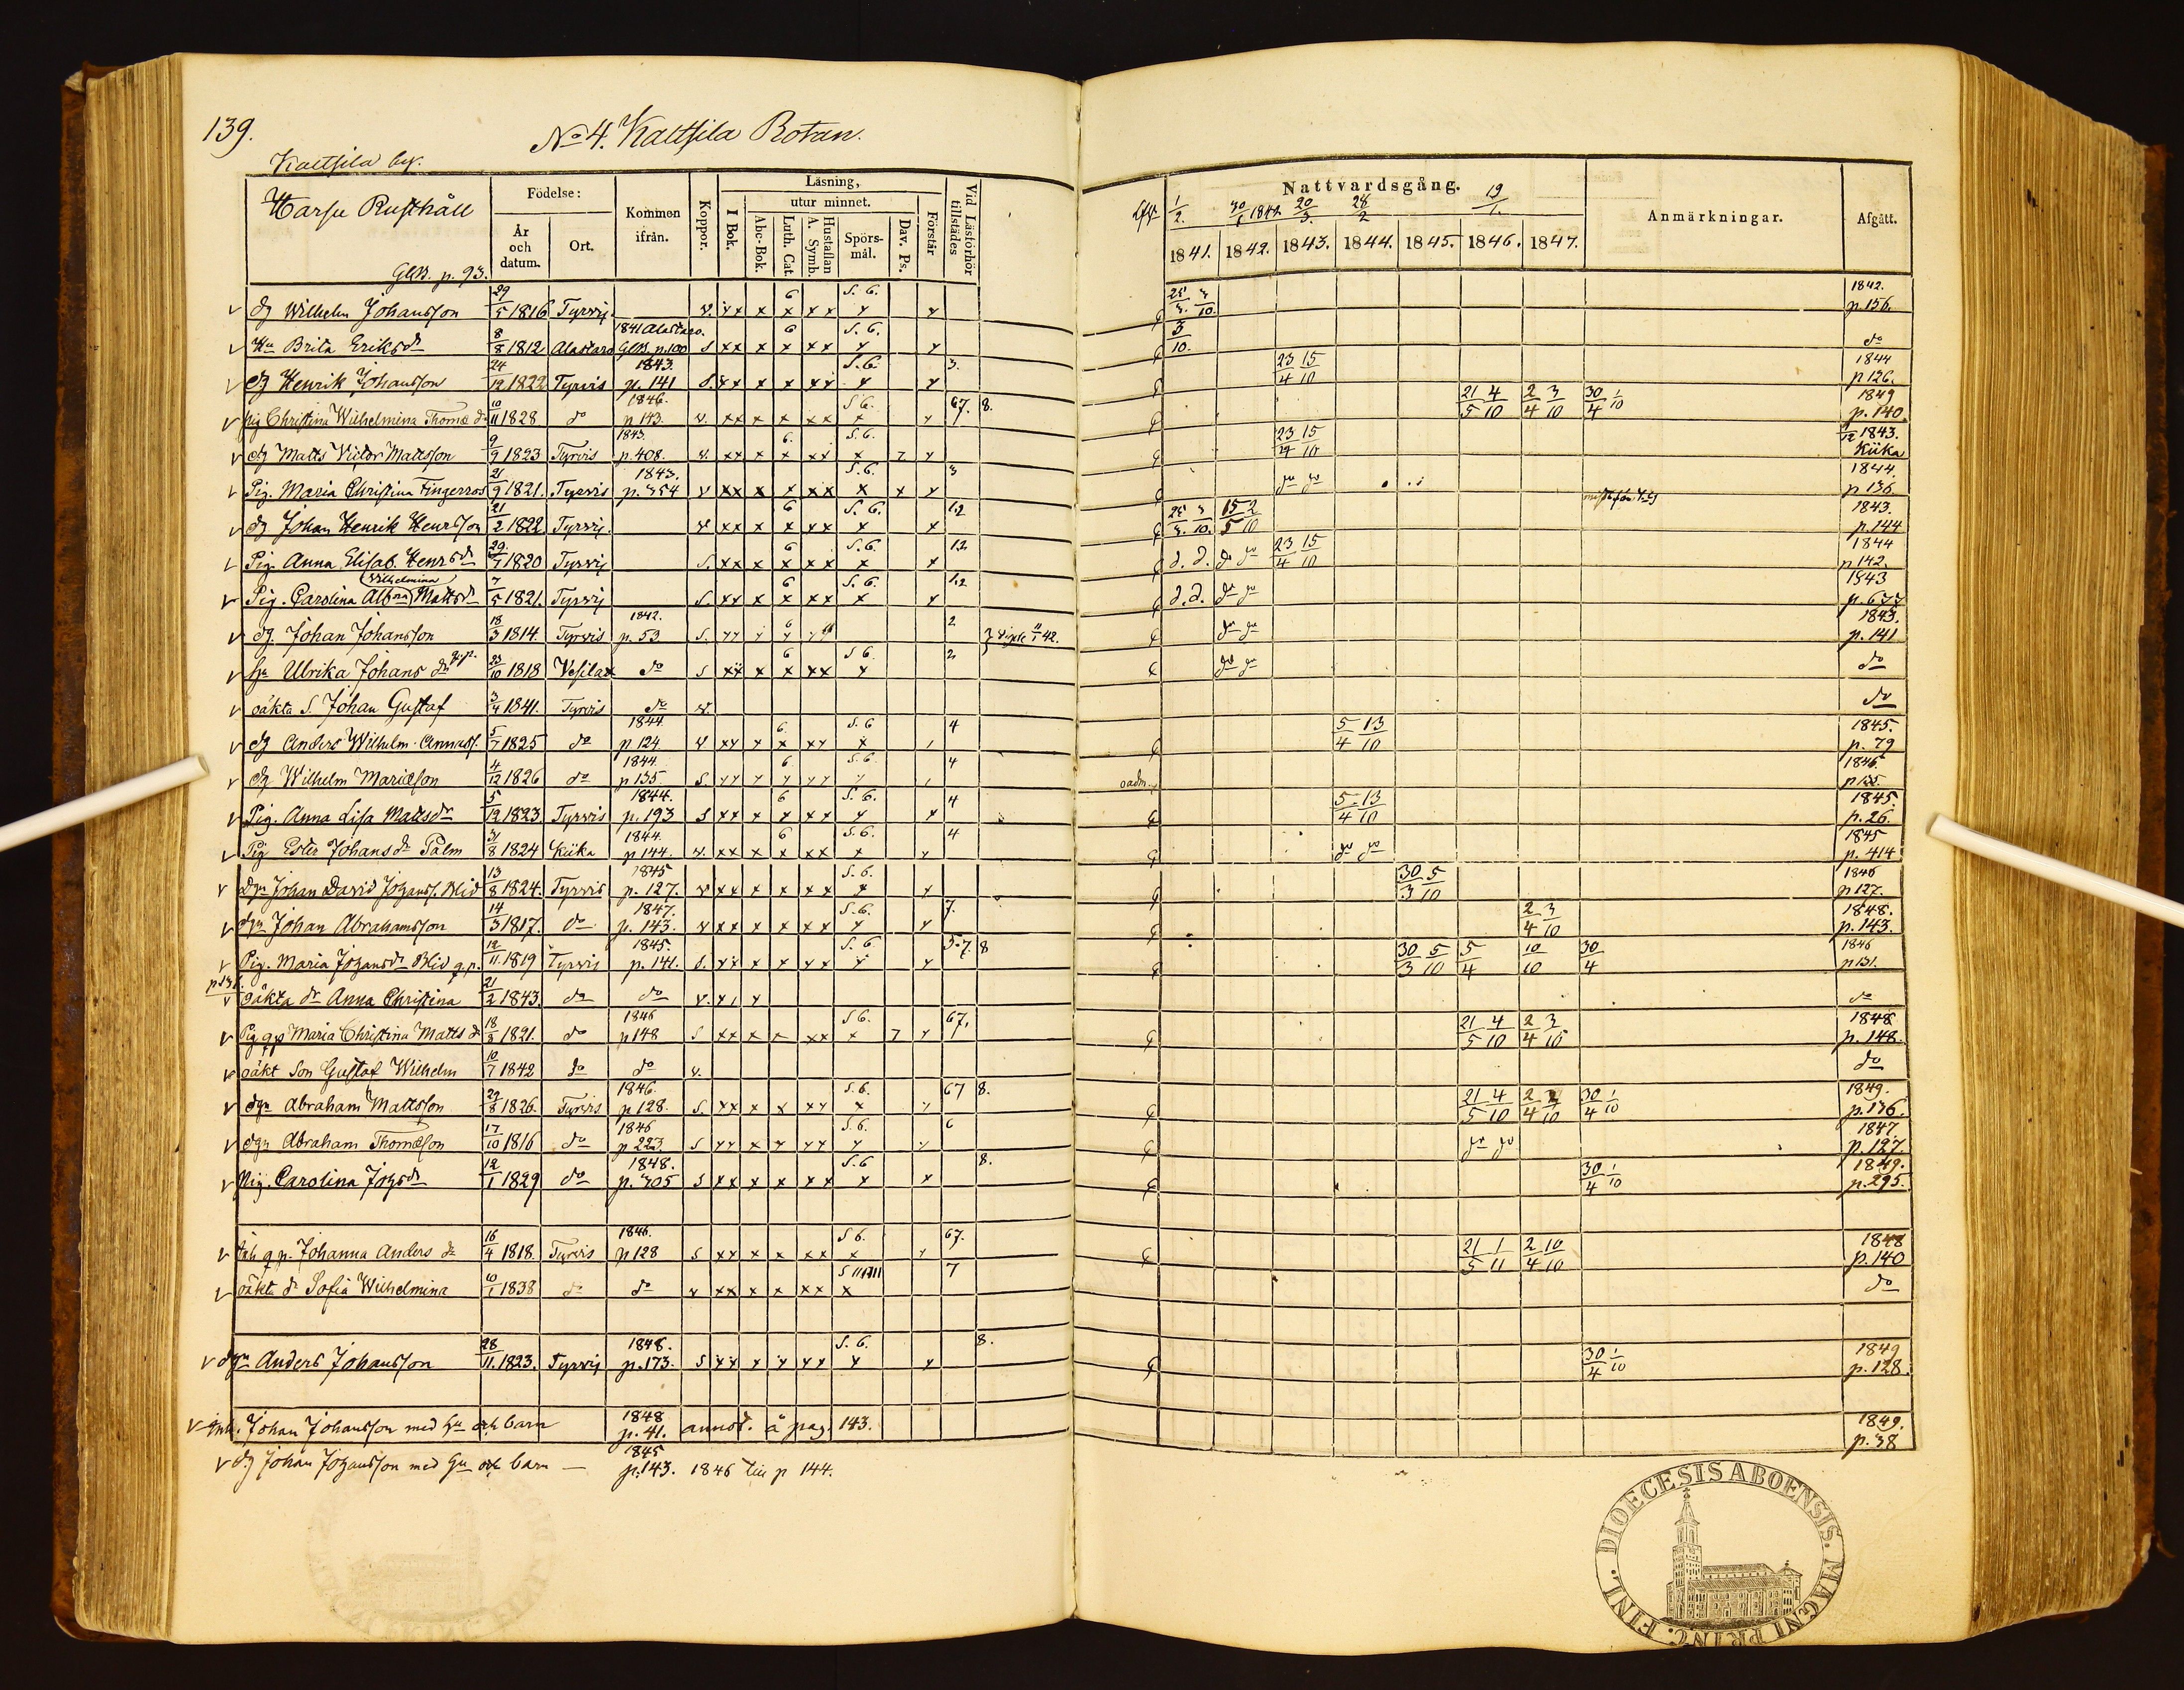 139.
No 4. Kaltsila Rotan.
Kaltsila by.
Harsu Rusthåll
GlB. p. 93.
Födelse: År och datum. Ort. Kommen ifrån. Koppor. Läsning, I Bok. utur minnet. Abc-Bok. Luth. Cat. Hustaflan A. Symb. Spörs-mål. Dav. Ps. Förstår Vid Läsförhör tillstädes
Nattvardsgång. 1/2 30/1 1842 20/3. 28/2 19/1.
1841. 1842. 1843. 1844. 1845. 1846. 1847. Anmärkningar. Afgått.
dg Wilhelm Johansson 29/5 1816 Tyrvis v. xx x 6 x xx S. 6. x x 3/10 1842. p. 156.
Hu Brita Eriksdr 8/8 1812 Alastaro 1841 Alastaro. GlB. p. 100 S xx x 6 x xx S. 6. x x 3/10. do
dg Henrik Johansson 24/12 1822 Tyrvis 1843. p. 141 S. xx x x xx S. 6. x x 3. 23/4 15/10 1844 p 126.
pig Christina Wilhelmina Thomæ dr 10/11 1828 do 1846. p 143. v. xx x x xx S 6. x x 67. 8. 21/5 4/10 2/4 3/10 30/4 1/10 1849 p. 140.
dg Matts Victor Mattsson 9/9 1823 Tyrvis 1843. p. 408. v. xx x 6. x xx S. 6. x 7 x 23/4 15/10 1843. Kiika
Pig. Maria Christina Fingerroos 21/9 1821. Tyrvis 1843. p. 354 v xx x x xx S. 6. x x x 3 do do 1844 p 136.
dg Johan Henrik Henrsson 21/2 1822 Tyrvis v. xx x 6 x xx S. 6. x x 1.2 3/10. 15/5 2/10 1843. p. 144
Pig Anna Elisab. Henrsdr 29/7 1820 Tyrvis S. xx x 6 x xx S. 6. x x 1.2 d. d. do do 23/4 15/10 1844 p 142.
Wilhelmina
Pig. Carolina Albna Mattsdr 7/5 1821. Tyrvis S. xx x 6 x xx S. 6. x x 1.2 d. d. do do 1843 p. 633
dg Johan Johansson 18/3 1814. Tyrvis 1842. p. 53 S. 6 2 42. do do 1843. p. 141
hu Ulrika Johans dr 23/10 1818 Vesilax do S xx x 6 x xx S 6. x 2 do do do
oäkta S. Johan Gustaf 3/4 1841. Tyrvis do v. do
dg Anders Wilhelm Annass. 5/7 1825 do 1844 p 124 v xx x 6. x xx S. 6 x 4 5/4 13/10 1845. p. 79
dg Wilhelm Mariæson 4/12 1826 do 1844. p 135. S. 6. S. 6. 4 oadm. 1846. p 135.
Pig. Anna Lisa Mattsdr 5/12 1823 Tyrvis 1844. p. 193 S xx x 6 x xx S. 6. x x 4 5/4 13/10 1845. p. 26.
Pig Ester Johansdr Palm 31/8 1824 Kiika 1844. p 144. v. xx x 6 x xx S. 6. x x 4 do do 1845 p. 414
dgn Johan David Johanss. Blid 13/8 1824. Tyrvis 1845 p. 127. v xx x x xx S. 6. x x 30/3 5/10 1846 p 127.
dgn Johan Abrahamsson 14/3 1817. do 1847. p. 143. v xx x x xx S. 6. x x 7. 2/4 3/10 1848. p. 143.
Pig. Maria Johansdr Blid q.p. 12/11. 1819 Tyrvis 1845. p. 141. S. xx x x xx S. 6 x x 5.7. 8 30/3 5/10 5/4 10/10 30/4 1846 p 131.
p 131.
oäkta dr Anna Christina 21/2 1843. do do v. do
Pig qp Maria Christina Matts dr 18/8 1821. do 1846 p 148 S xx x x xx S 6. x 7 x 67, 21/5 4/10 2/4 3/10 1848 p. 148.
oäkt Son Gustaf Wilhelm 10/7 1842 do do v. do
dgn Abraham Mattsson 29/8 1826. Tyrvis 1846. p 128. S. xx x x xx S. 6. x x 67 8. 21/5 4/10 30/4 1/10 1849. p. 136.
dgn Abraham Thomæson 17/10 1816 do 1846 p 223. S xx x x xx S. 6. x 6 do do 1847 p. 127.
Pig. Carolina Johsdr 12/1 1829 do 1848. p. 305 S xx x x xx S. 6 x x 8. 30/4 1/10 1849. p. 295.
Inh qp. Johanna Anders dr 16/4 1818. Tyrvis 1846. p 128 S xx x x xx S 6. x x 67. 21/5 1/11 2/4 10/10 1848 p. 140
oäkta dr Sofia Wilhelmina 10/1 1838 do do v xx x x xx x 7 do
dgn Anders Johansson 28/11. 1823. Tyrvis 1848. p. 173. S xx x x xx S. 6. x x 8. 30/4 1/10 1849 p. 128.
Inh. Johan Johansson med hu och barn 1848 p. 41. annot. å pag. 143. 1849. p. 38
dg Johan Johansson med hu och barn — 1845 p. 143. 1846 till p 144.
DIOECESIS ABOENSIS. MAGNI PRINC. FINL.